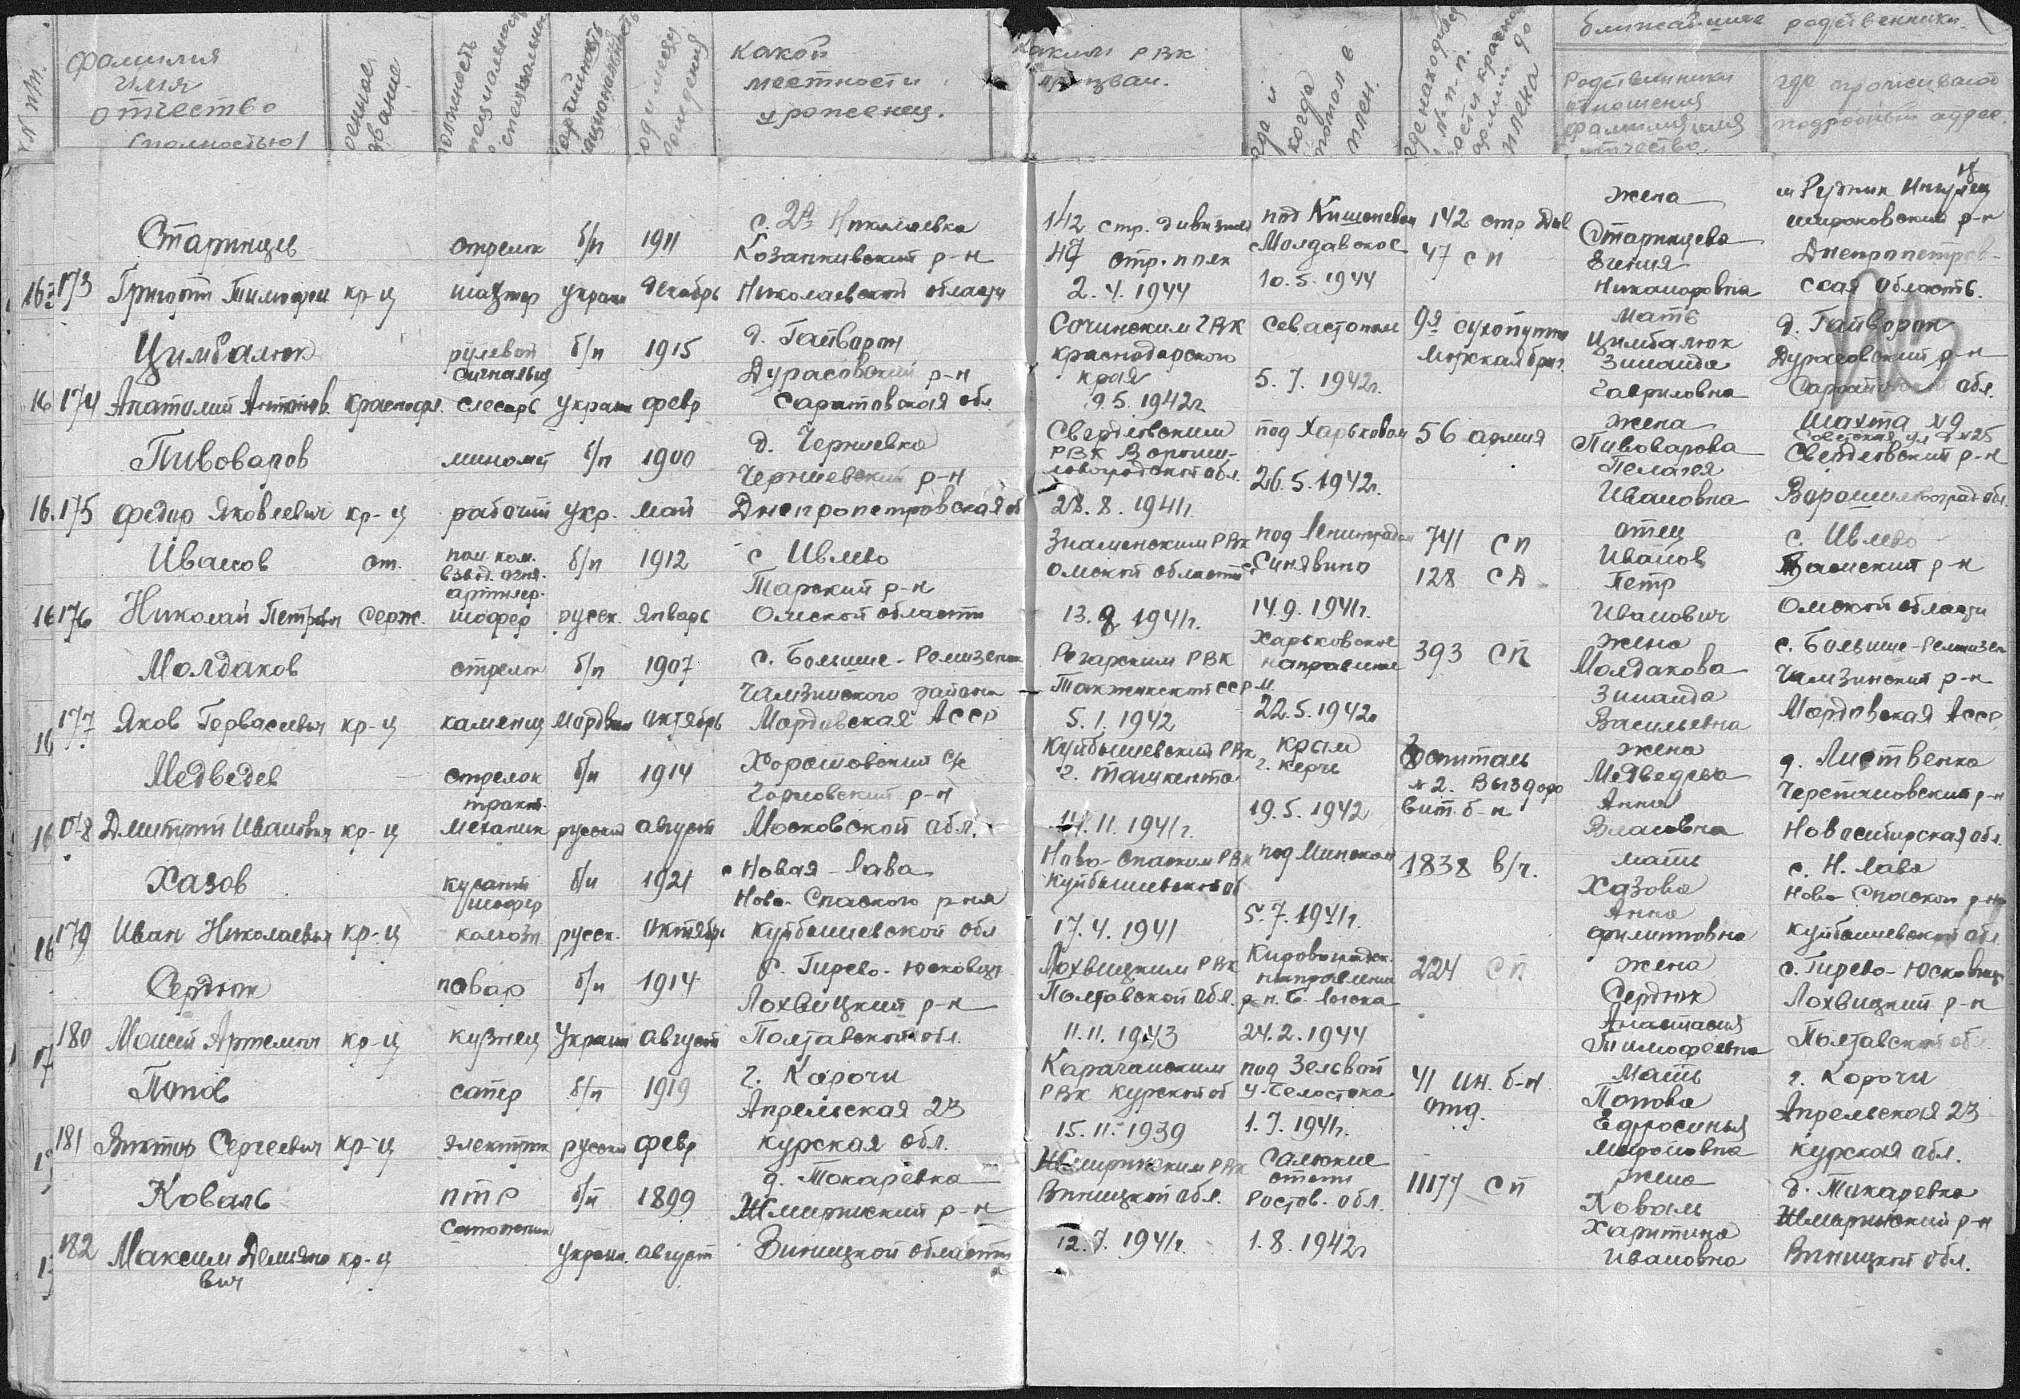 № п/п.
фамилия
имя
отчество
(полностью)
военное звание
должность специальность
партийность национальность
год и месяц рождения
какой
местности
уроженец.
каким РВК
призван.
где и когда попал в плен.
ближайшие родственники.
Родственники
отношения
фамилия имя
отчество
где проживают
подробный адрес.
173
Старинцев
Григорий Тимофеи
кр-ц
стрелок
шахтер
б/п
украин
1911
декабрь
Николаевка
Козанкивский р-н
Николаевской области
142 стр. дивизией
47 стр. полк
2.4.1944
под Кишеневом
Молдавское
10.5.1944
142 стр див
47 сп
жена
Старинцева
Никаноровна
Рудник Ингулец
широковский р-н
Днепропетров-
ская область.
174
Цимбалюк
Анатолий Антонов.
Краснофл.
рулевой
сигнальщ
слесарь
б/п
украин
1915
февр
д. Гайворон
Дурасовский р-н
Саратовская обл.
Сочинским ГВК
краснодарского
края
9.5.1942г
Севастополь
5.7.1942г.
9я сухопутно
Морская бриг.
мать
Цимбалюк
Зинаида
Гавриловна
д. Гайворон
Дурасовский р-н
обл.
175
Пивоваров
федор Яковлевич
кр-ц
миномт
рабочий
б/п
укр.
1900
май
д. Чернеевка
Днепропетровская об
Свердловским
РВК Вороши-
ловоградской обл.
28.8.1941г
под Харьковом
26.5.1942г.
56 армия
жена
Пивоварова
Пелагея
Ивановна
Шахта №9
Советская ул д №25
Свердловский р-н
Ворошиловоград. обл.
176
Иванов
Николай Петрович
ст.
серж.
пом. ком.
взвод. огня.
артилер.
шофер
б/п
русск.
1912
январь
с Ивлево
Тарский р-н
Омской области
Знаменским РВК
Омской области
13.9.1941г.
под Ленинградом
Синявино
14.9.1941г.
741 сп
128 сд
отец
Иванов
Петр
Иванович
с. Ивлево
р-н
Омской области
177
Молдаков
Яков Гервасиевич
кр-ц
стрелок
каменщ
б/п
мордвин
1907
октябрь
с. Больше-Ремизенки
Чамзинского района
Мордовская АССР
Регарским РВК
Таджикской ССР
5.1.1942
Харьковское
направление
22.5.1942г
393 сп
жена
Молдакова
Зинаида
Васильевна
с. Больше-Ремизен
Чамзинский р-н
Мордовская АССР
178
Медведев
Дмитрий Иванович
кр-ц
стрелок
тракт.
механик
б/п
русский
1914
август
с/с
р-н
Московской обл.
Куйбышевский РВК
г. Ташкента
14.11.1941г.
Крым
г. Керчь
19.5.1942
Госпиталь
№2. Выздоро
вит. б-н
жена
Медведева
Анна
Власовна
д. Лиственка
Черепановский р-н
Новосибирская обл.
179
Хазов
Иван Николаевич
кр-ц
курсант
шофер
колхозн
б/п
русск.
1921
Октябрь
с Новая-Лава
Ново-Спаского р-ня
Куйбышевской обл
Ново-Спаским РВК
Куйбышевской об
17.4.1941
под Минском
5.7.1941г.
1838 в/ч.
мать
Хазова
Анна
филипповна
с. Н. Лава
Ново-Спаской р-ня
Куйбышевской обл
180
Сердюк
Моисей Артемич
кр-ц
повар
кузнец
б/п
Украин
1914
август
с. Гирево-Юсковцы
Лохвицкий р-н
Полтавской обл.
Лохвицким РВК
Полтавской обл.
11.11.1943
направление
24.2.1944
224 сп
жена
Сердюк
Анастасия
Тимофеевна
с. Гирево-Юсковцы
Лохвицкий р-н
Полтавской об
181
Попов
Виктор Сергеевич
кр-ц
сапер
электрик
б/п
русский
1919
февр
г. Корочи
Апрельская 23
курская обл.
РВК Курской об
15.11.1939
под Зельвой
у-Белостока
1.7.1941г.
41 ин. б-н
отд.
Мать
Попова
Ефросинья
Мироновна
г. Корочи
Апрельская 23
Курская обл.
182
Коваль
Максим Демьяно
вич
кр-ц
птр
б/п
украин.
1899
август
д. Токаревка
Жмеринский р-н
Виницкой области
Жмеринским РВК
Виницкой обл.
12.7.1941г.
Сальские
степи
Ростов. обл.
1.8.1942г
11177 сп
жена
Коваль
Харитина
Ивановна
д. Токаревка
Жмеринский р-н
Виницкой обл.